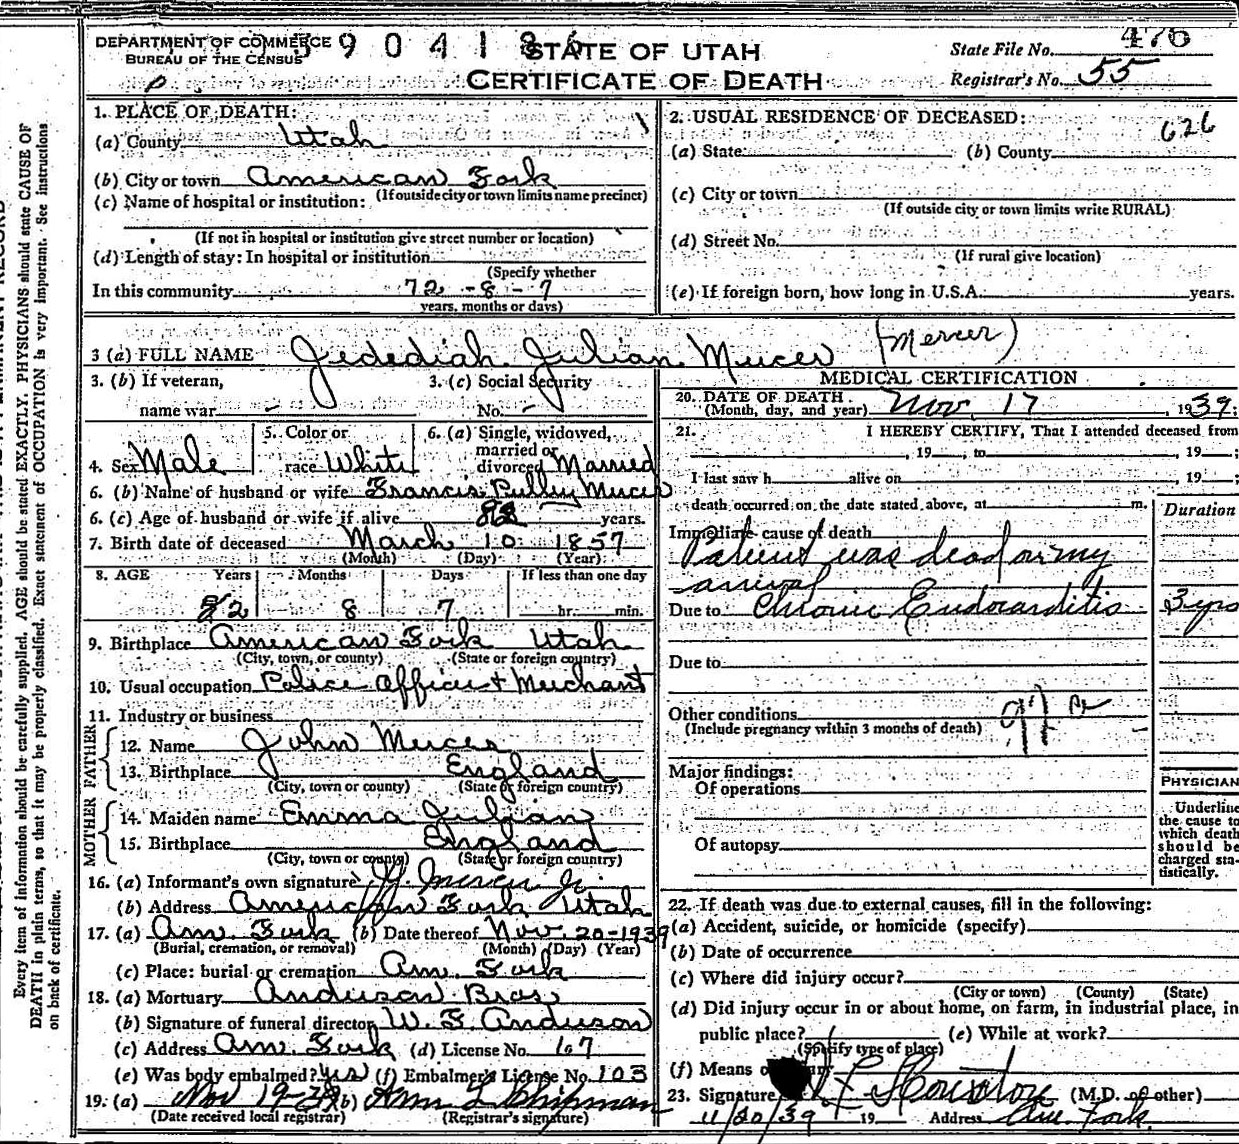 DEPARTMENT OF COMMERCE
BUREAU OF THE CENSUS
3904186
STATE OF UTAH
CERTIFICATE OF DEATH
State File No. 476
Registrar's No. 55
1. PLACE OF DEATH:
(a) County Utah
(b) City or town American Fork
(If outside city or town limits name precinct)
(c) Name of hospital or institution:
(If not in hospital or institution give street number or location)
(d) Length of stay: In hospital or institution
(Specify whether
In this community 72-8-7
years, months or days)
2. USUAL RESIDENCE OF DECEASED:
626
(a) State (b) County
(c) City or town
(If outside city or town limits write RURAL)
(d) Street No.
(If rural give location)
(e) If foreign born, how long in U.S.A. years.
3 (a) FULL NAME Jedediah Julian Mercer (Mercer)
3. (b) If veteran,
name war -
3. (c) Social Security
No. -
4. Sex Male
5. Color or
race White
6. (a) Single, widowed,
married or
divorced Married
6. (b) Name of husband or wife Francis Pulley Mercer
6. (c) Age of husband or wife if alive 82 years.
7. Birth date of deceased March 10 1857
(Month) (Day) (Year)
8. AGE Years Months Days If less than one day
82 8 7 hr. min.
9. Birthplace American Fork Utah
(City, town, or county) (State or foreign country)
10. Usual occupation Police Officer + Merchant
11. Industry or business
FATHER
12. Name John Mercer
13. Birthplace England
(City, town or county) (State or foreign country)
MOTHER
14. Maiden name Emma Julian
15. Birthplace England
(City, town or county) (State or foreign country)
16. (a) Informant's own signature J. J. Mercer Jr.
(b) Address American Fork Utah
17. (a) Am. Fork (b) Date thereof Nov. 20-1939
(Burial, cremation, or removal) (Month) (Day) (Year)
(c) Place: burial or cremation Am. Fork
18. (a) Mortuary Anderson Bros
(b) Signature of funeral director W. F. Anderson
(c) Address Am. Fork (d) License No. 167
(e) Was body embalmed? yes (f) Embalmer's License No. 103
19. (a) Nov 19-39 (b) Wm L Chipman
(Date received local registrar) (Registrar's signature)
MEDICAL CERTIFICATION
20. DATE OF DEATH
(Month, day, and year) Nov 17, 1939;
21. I HEREBY CERTIFY, That I attended deceased from
, 19 , to , 19 ;
I last saw h alive on , 19 ;
death occurred on the date stated above, at m.
Duration
Immediate cause of death
Patient was dead on my
arrival
Due to Chronic Endocarditis 3 yrs
Due to
Other conditions
(Include pregnancy within 3 months of death)
Major findings:
Of operations
Of autopsy
PHYSICIAN
Underline
the cause to
which death
should be
charged sta-
tistically.
22. If death was due to external causes, fill in the following:
(a) Accident, suicide, or homicide (specify)
(b) Date of occurrence
(c) Where did injury occur?
(City or town) (County) (State)
(d) Did injury occur in or about home, on farm, in industrial place, in
public place? (e) While at work?
(Specify type of place)
(f) Means
23. Signature (M.D. or other)
11/20/39 19 Address Am. Fork
Every item of information should be carefully supplied. AGE should be stated EXACTLY. PHYSICIANS should state CAUSE OF
DEATH in plain terms, so that it may be properly classified. Exact statement of OCCUPATION is very important. See instructions
on back of certificate.